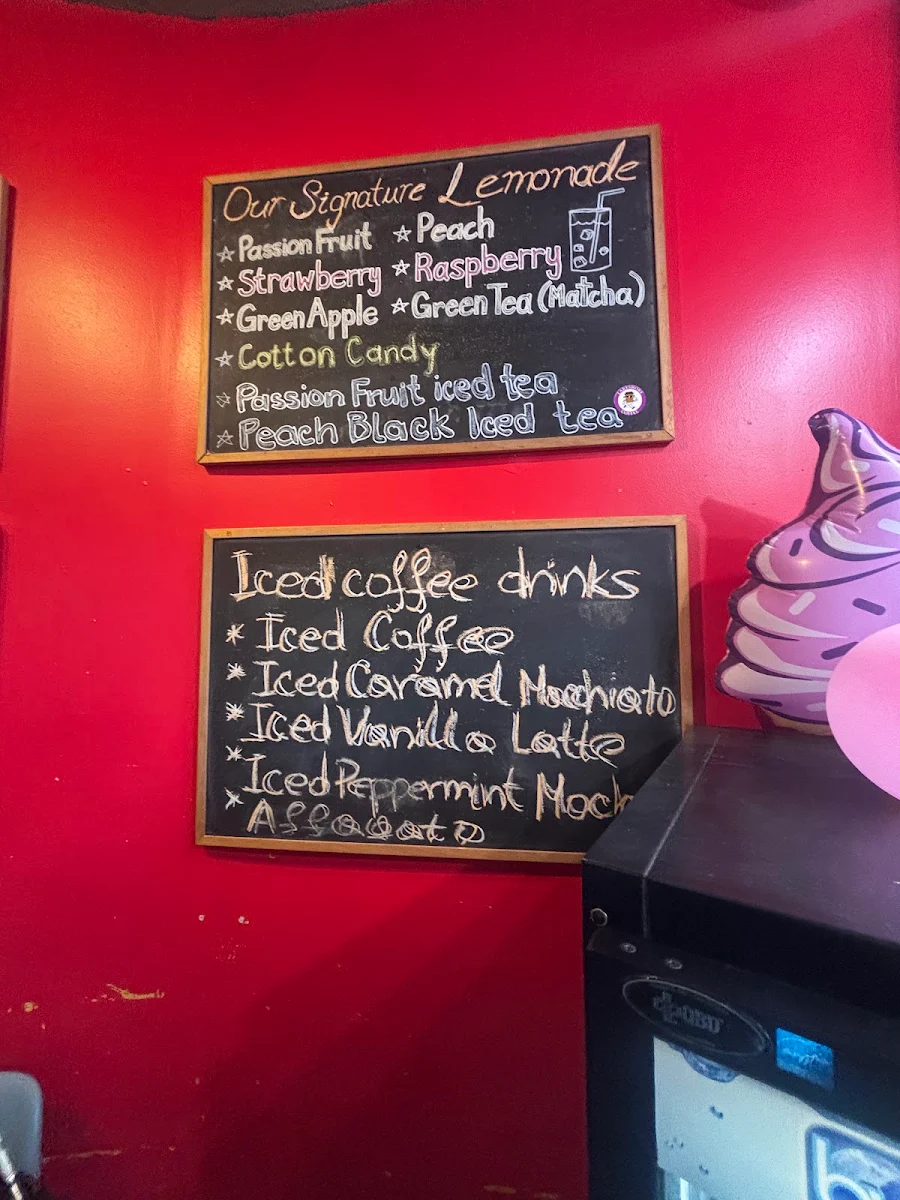 Our Signature Lemonade
☆ Passion Fruit ☆ Peach
☆ Strawberry ☆ Raspberry
☆ Green Apple ☆ Green Tea (Matcha)
☆ Cotton Candy
☆ Passion Fruit iced tea
☆ Peach Black Iced tea
Iced coffee drinks
* Iced Coffee
* Iced Caramel Macchiato
* Iced Vanilla Latte
* Iced Peppermint Moch
* Affogato